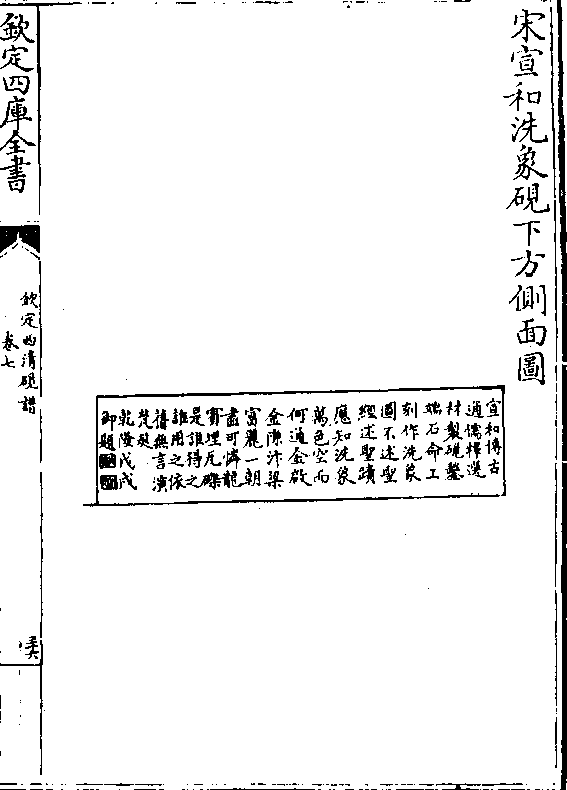 宋宣和洗象硯下方側面圖
宣和博古
通儒釋選
材製硯鑿
端石命工
刻作洗象
圖不述聖
經述聖蹟
應知洗象
萬色空而
何通金啟
金陳汴梁
富麗一朝
盡可憐龍
賓埋瓦礫
是誰得之
誰用之依
舊無言演
乾隆戊戌
御題
欽定四庫全書
欽定西清硯譜
卷七